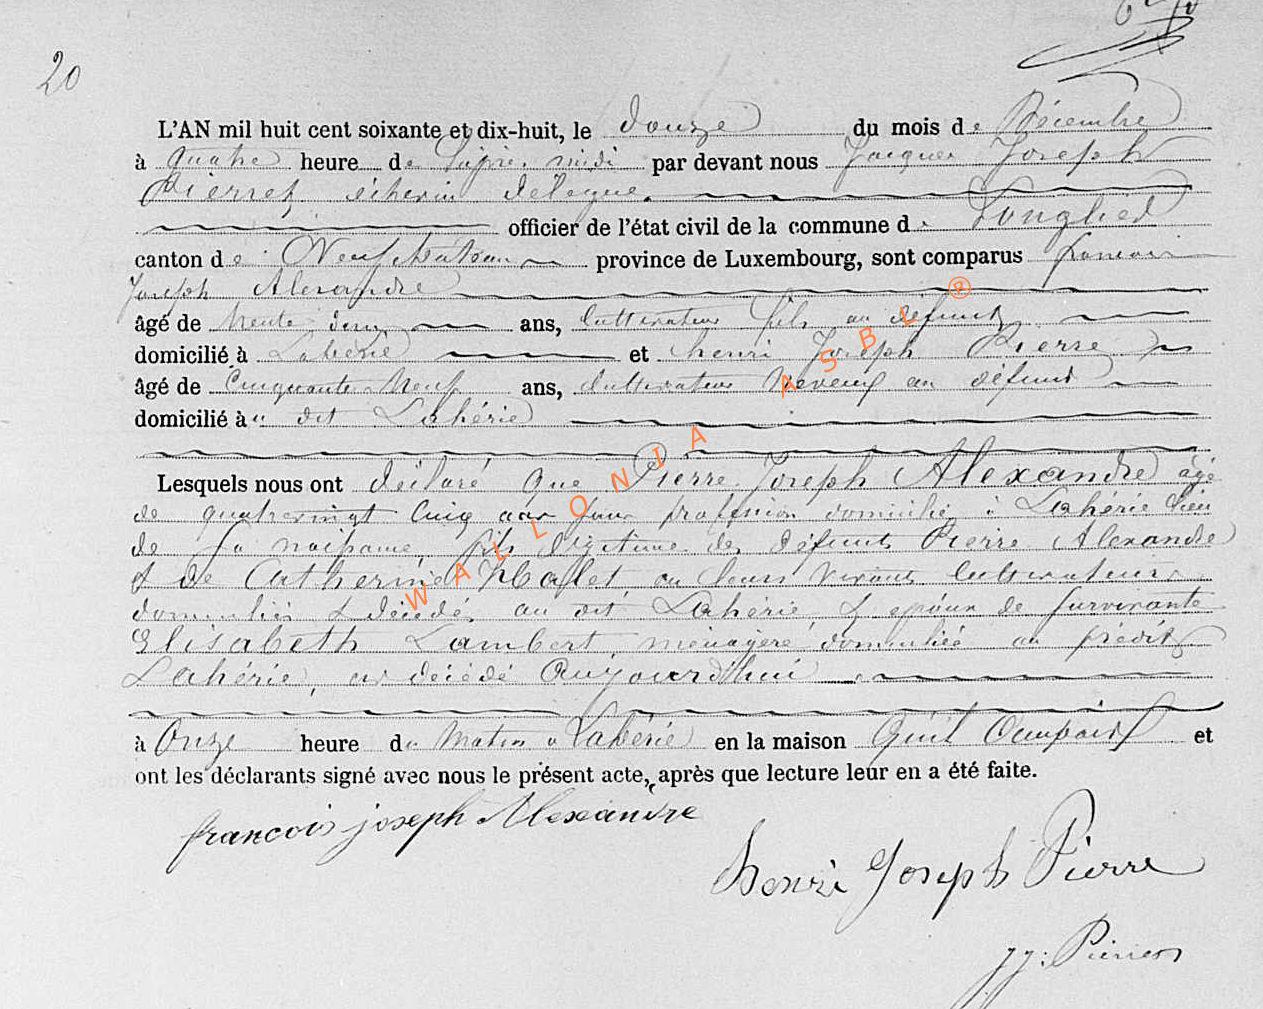 20
L'AN mil huit cent soixante et dix-huit, le douze du mois de Décembre
à quatre heure de l'après midi par devant nous Jacques Joseph
Pierret échevin délégué
officier de l'état civil de la commune de Longlied
canton de Neufchâteau province de Luxembourg, sont comparus francois
Joseph Alexandre
âgé de trente deux ans, Cultivateur fils au défunt
domicilié à Lahérie et henri Joseph Pierre
âgé de Cinquante Neuf ans, Cultivateur Neveux au défunt
domicilié à dit Lahérie
Lesquels nous ont déclaré que Pierre Joseph Alexandre âgé
de quatrevingt Cinq ans sans profession domicilié à Lahérie lieu
de sa naissance, fils légitime des défunts Pierre Alexandre
et de Catherine Halet en leurs vivants Cultivateurs
domiciliés & décédés au dit Lahérie, & epoux de survivante
Elisabeth Lambert, ménagère domiciliée au prédit
Lahérie, est décédé Aujourd'hui
à Onze heure du Matin a Lahérie en la maison Qu'il Occupait et
ont les déclarants signé avec nous le présent acte, après que lecture leur en a été faite.
francois joseph Alexandre
henri Joseph Pierre
jj: Pierret
WALLONIA ASBL ®